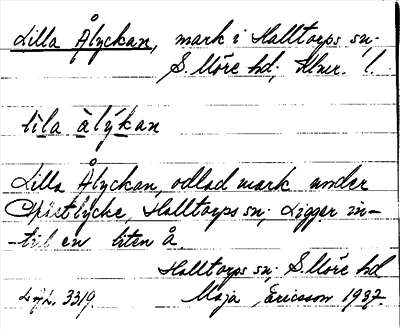 Lilla Ålyckan, mark i Halltorps sn,
S. Möre hd, Klmr. l.
lila ålýkan
Lilla Ålyckan, odlad mark under
Påstlycke, Halltorps sn; Ligger in-
-til en liten å
Halltorps sn; S. Möre hd
3319. Maja Ericsson 1937.